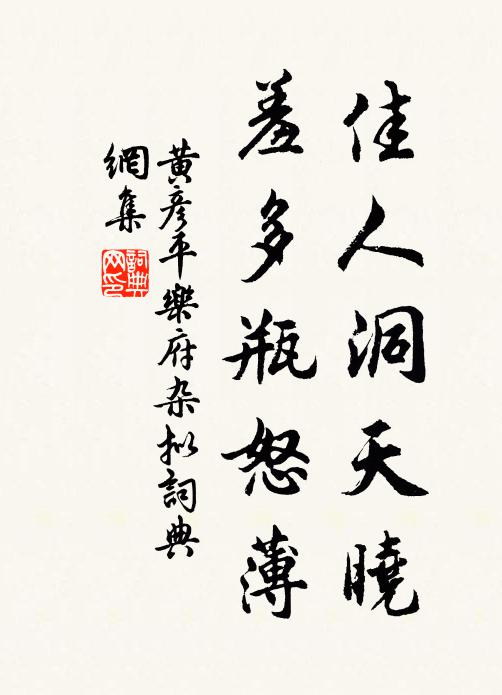 佳人洞天曉
羞多瓶怒薄
黃彥平樂府杂拟詞典
網集
詞典网印